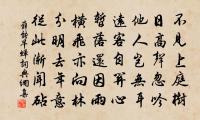 不見上庭樹
日高聲忽吟
他人豈無耳
遠客自關心
暫落還因雨
橫飛亦向林
分明去年意
從此漸聞砧
薛能早蟬詞典網集